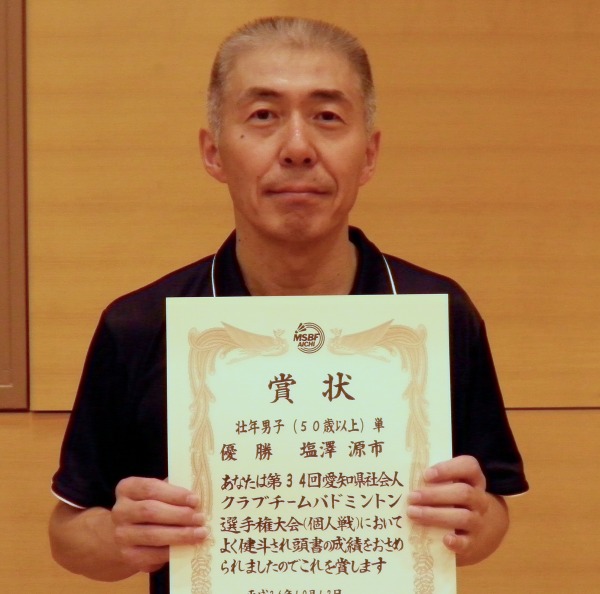 MSBF
AICHI
賞状
壮年男子(50歳以上)単
優勝 塩澤 源市
あなたは第34回愛知県社会人
クラブチームバドミントン
選手権大会(個人戦)において
よく健斗され頭書の成績をおさめ
られましたのでこれを賞します